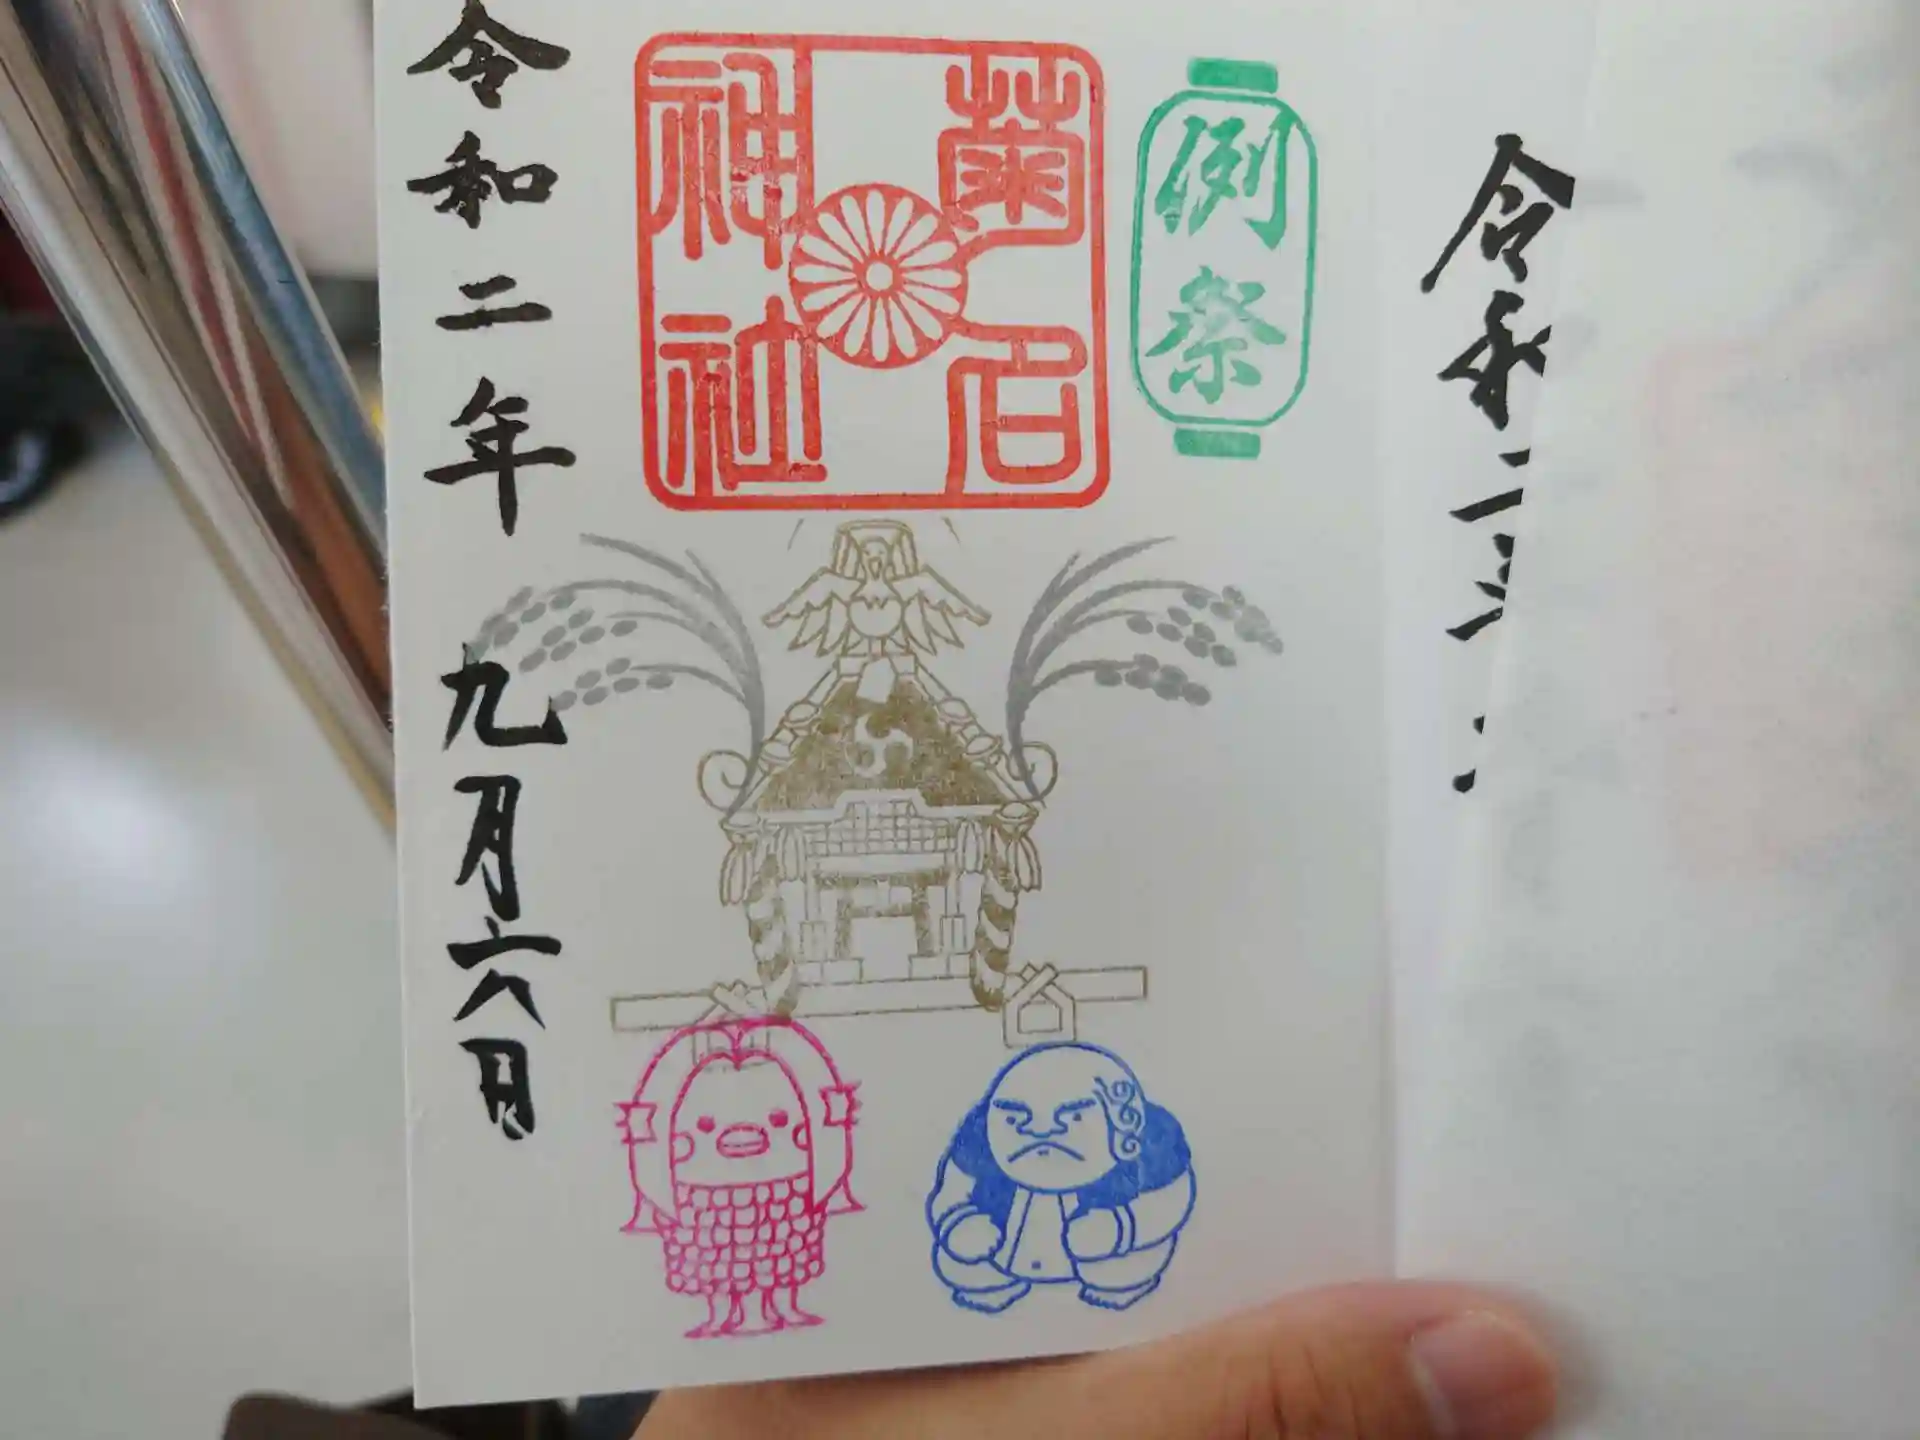 例祭
菊名
神社
令和二年
九月六日
令和二